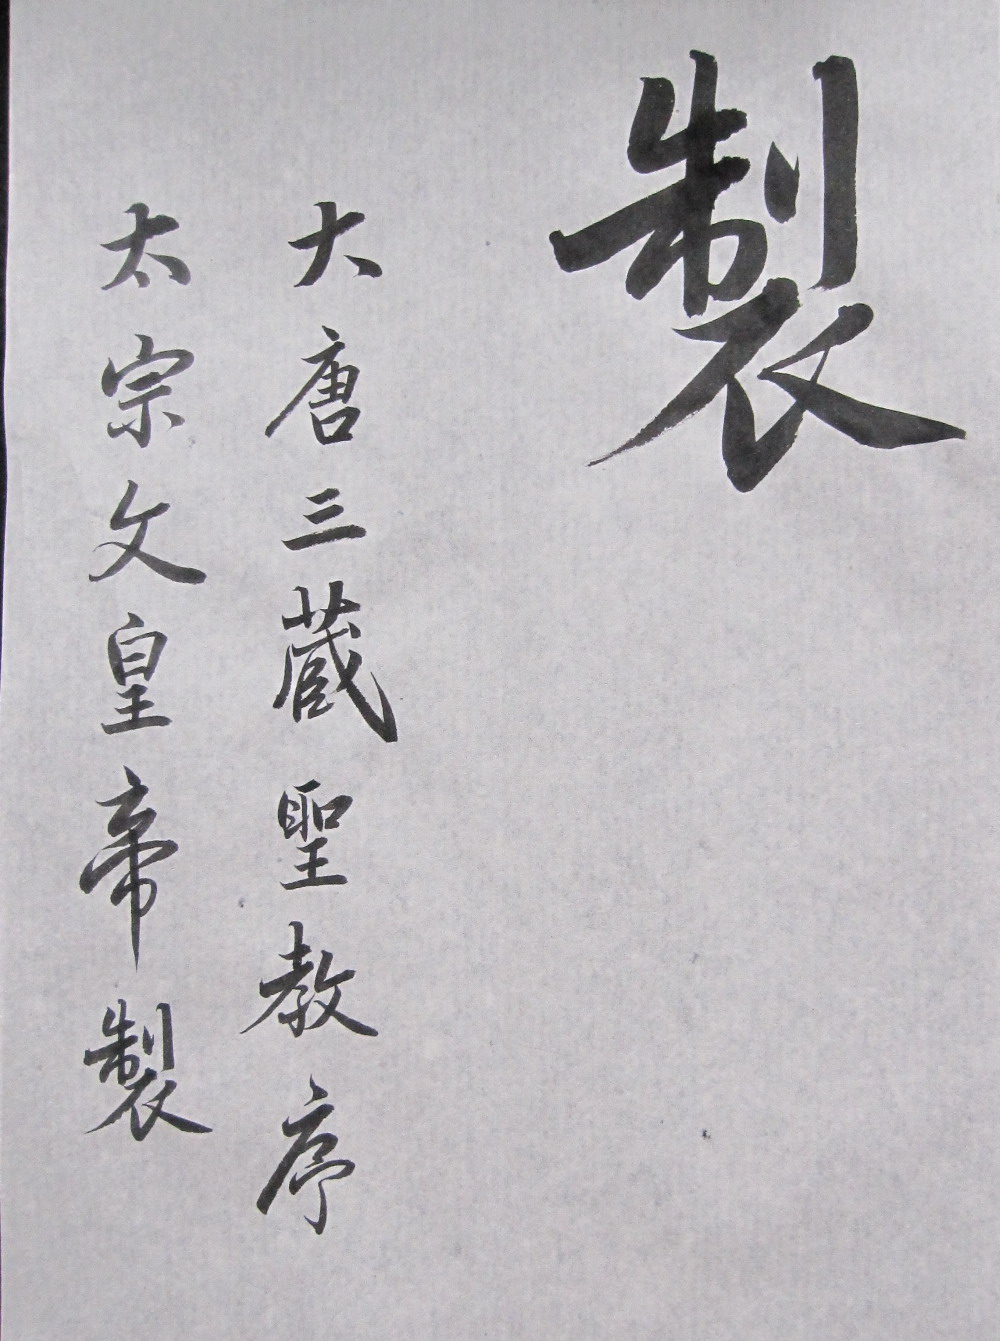 製
大唐三蔵聖教序
太宗文皇帝製